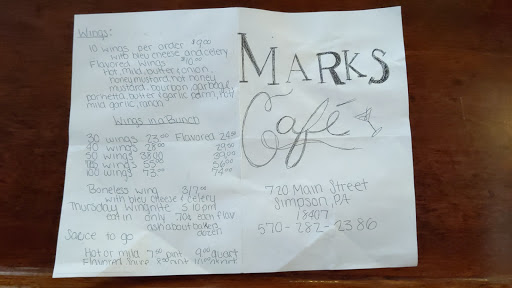 Wings:
10 wings per order $9.00
with bleu cheese and celery
Flavored wings $10.00
Hot, mild, butter onion,
honey mustard, hot honey
mustard, bourbon, garbage,
butter garlic parm,
mild garlic, ranch
Wings in a Bunch
30 wings 23.00 Flavored
40 wings 28.00 29.00
50 wings 38.00 39.00
wings 55.00 56.00
100 wings 73.00 74.00
Boneless wing
with bleu cheese & celery
Thursday wingnite 5-10 pm
eat in only 70¢ each flav
ask about baker's
dozen
Sauce to go
Hot or mild 7.50 pint 9.00 quart
MARKS
Café
720 Main Street
Simpson, PA
18407
570-282-2386